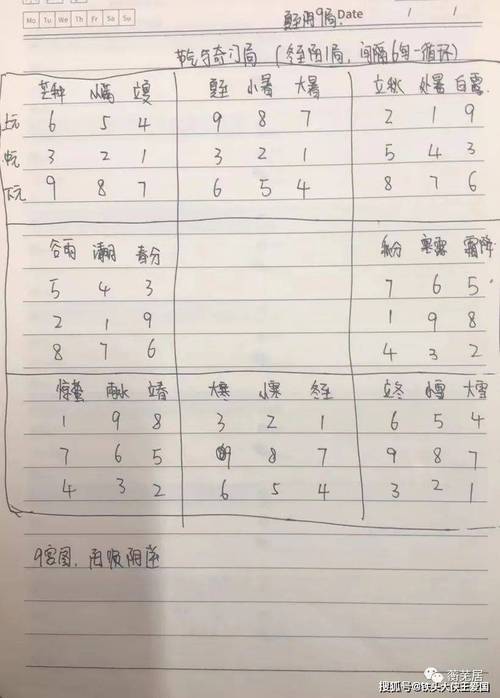 Mo Tu We Th Fr Sa Su
夏至阴9局. Date / /
节气与奇门局 (冬至阳1局, 间隔6每一循环)
芒种 小满 立夏 夏至 小暑 大暑 立秋 处暑 白露
上元 6 5 4 9 8 7 2 1 9
中元 3 2 1 3 2 1 5 4 3
下元 9 8 7 6 5 4 8 7 6
谷雨 清明 春分 秋分 寒露 霜降
5 4 3 7 6 5
2 1 9 1 9 8
8 7 6 4 3 2
惊蛰 雨水 立春 大寒 小寒 冬至 立冬 小雪 大雪
1 9 8 3 2 1 6 5 4
7 6 5 9 8 7 9 8 7
4 3 2 6 5 4 3 2 1
9宫图, 阳顺阴逆
蘅芜居
搜狐号@铁头大侠王爱国